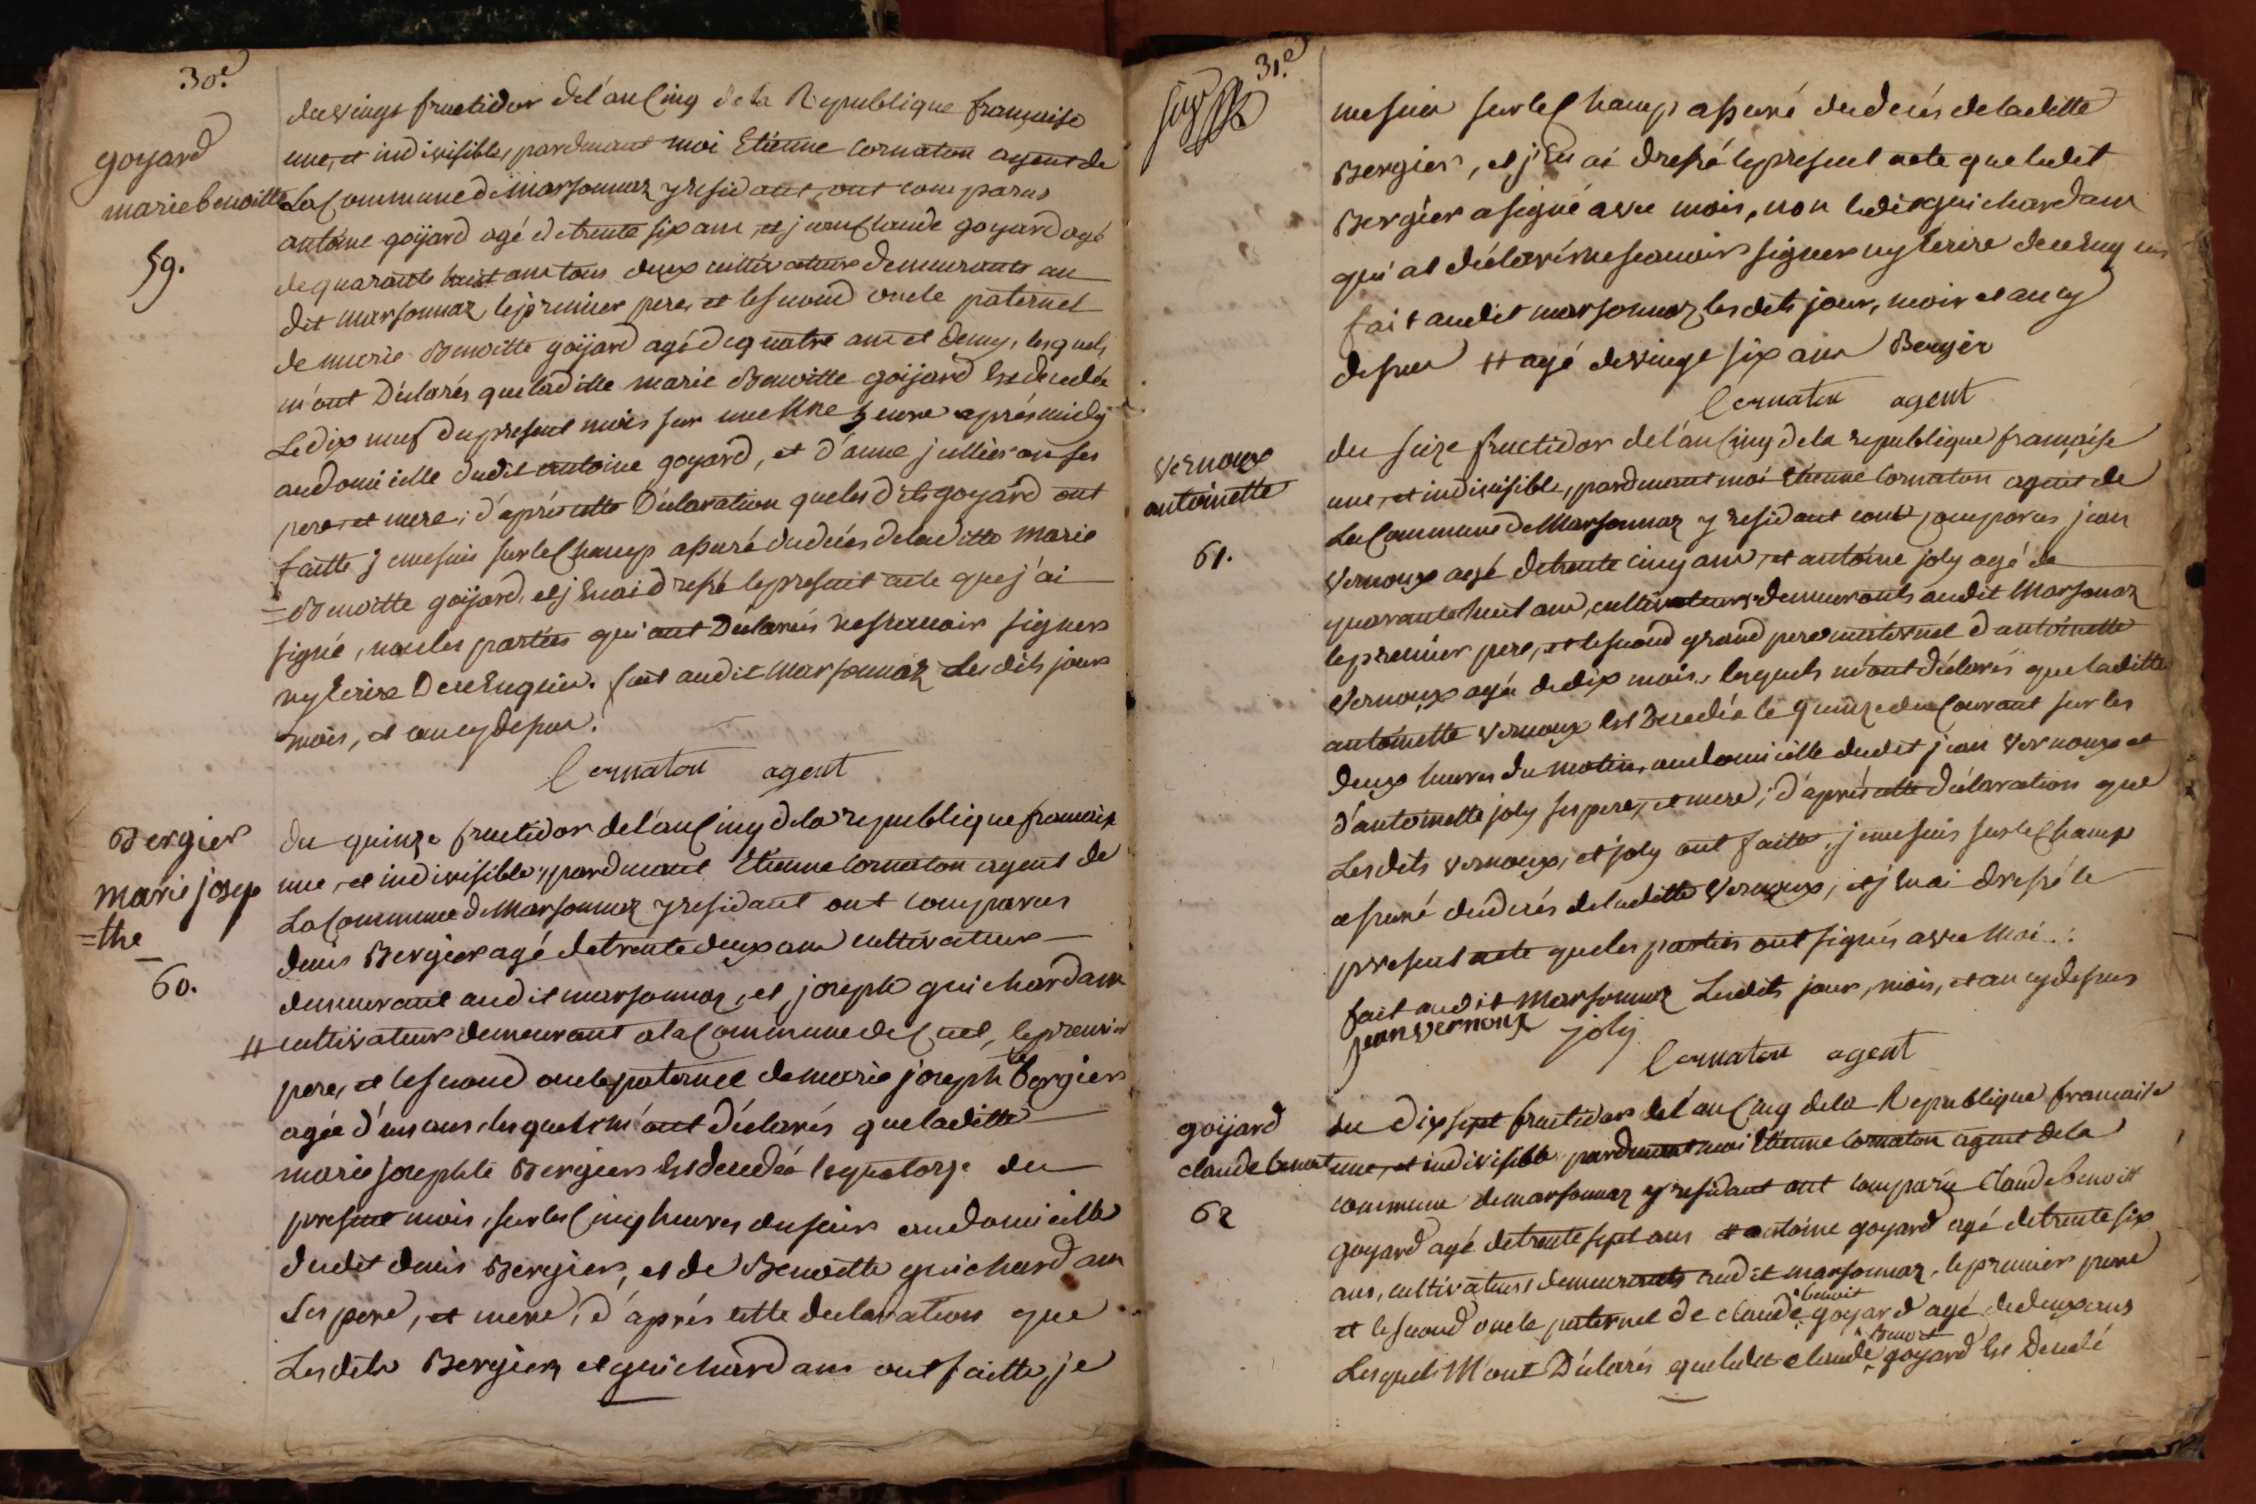 30.e
goyard
marie benoitte
59.
du vingt fructidor de l'an cinq de la Republique française
une, et indivisible, pardevant moi Etienne Cornaton agent de
La Commune de Marsonnaz y residant, ont comparus
antoine goyard agé de trente six ans, et jean Claude goyard agé
de quarante huit ans tous deux cultivateurs demeurants au
dit marsonnaz, le premier pere, et le second oncle paternel
de marie Benoitte goijard agé de quatre ans et demy, lesquels
m'ont Déclarés que laditte marie Benoitte goijard Est decedée
Le dix neuf du present mois sur une heure après midy
au domicille dudit antoine goyard, et d'anne jullieron ses
pere, et mere; d'après cette Déclaration que les dits goyard ont
faitte je me suis sur le Champ assuré du decés de laditte Marie
=Benoitte goijard, et j'En ai dressé le present acte que j'ai
signé, non les parties qui ont Déclarés ne scavoir signer
ny Ecrire De ce Enquis. fait audit Marsonnaz Les dits jour
mois, et an cy dessus.
Cornaton agent
Bergier
marie josep
=the
60.
du quinze fructidor de l'an Cinq de la republique francaise
une, et indivisible, pardevant Etienne Cornaton agent de
La Commune de Marsonnaz y residant ont comparus
denis Bergier agé de trente deux ans cultivateur
demeurant audit marsonnaz, et joseph guichardam
# cultivateur demeurant a la Commune de Cuet, le premier
pere, et le second oncle paternel de marie josephte Bergier
agée d'un ans, lesquels m'ont déclarés que laditte
marie josephte Bergier Est decedée le quatorze du
present mois, sur les Cinq heures du soir au domicille
dudit denis Bergier, et de Benoitte guichardam
Ses pere, et mere, d'après cette declaration que
Les dits Bergier et guichardam ont faitte, je
31.e
me suis sur le Champ assuré du decés de laditte
Bergier, et j'En ai dressé le present acte que ledit
Bergier a signé avec mois, non ledit guichardam
qui at déclaré ne scavoir signer ny Ecrire de ce Enquis
fait audit marsonnaz les dits jour, moir et an cy
dessus # agé de vingt six ans Bergier
Cornaton agent
Vernoux
antoinette
61.
du seize fructidor de l'an cinq de la republique française
une, et indivisible, pardevant moi Etienne Cornaton agent de
La Commune de Marsonnaz y residant sont comparus jean
Vernoux agé de trente cinq ans, et antoine joly agé de
quarante huit ans, cultivateurs demeurants audit Marsonnaz
le premier pere, et le second grand pere maternel d'antoinette
Vernoux agée de dix mois, lesquels m'ont déclarés que laditte
antoinette Vernoux Est Decedée le quinze du Courant sur les
deux heures du matin, au domicille dudit jean Vernoux et
d'antoinette joly ses pere, et mere; d'après cette déclaration que
Les dits Vernoux, et joly ont faitte, je me suis sur le Champ
assuré du decés de laditte Vernoux, et j'En ai dressé le
present acte que les parties ont signés avec Moi.
fait audit Marsonnaz Lesdits jour, mois, et an cy dessus
jean vernoux joly
Cornaton agent
goijard
claude benoit
62
du dix sept fructidor de l'an Cinq de la Republique francaise
une, et indivisible pardevant moi Etienne Cornaton agent de la
commune de marsonnaz y residant ont comparu Claude benoitt
goyard agé de trente sept ans et antoine goyard agé de trente six
ans, cultivateurs demeurants audit marsonnaz, le premier pere
et le second oncle paternel de claude benoit goyard agé de deux ans
Lesquels M'ont Déclarés que ledit claude Benoit goyard Est Decedé